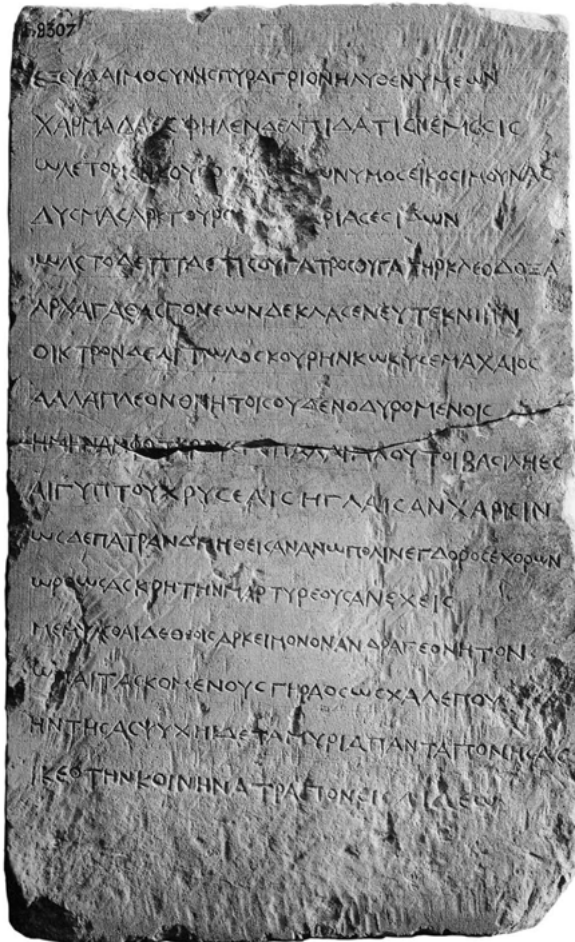 Є.9307
ΕΞΕΥΔΑΙΜΟΣΥΝΗΣΠΥΡΑΓΡΙΟΝΗΛΥΘΕΝΥΜΕΩΝ
ΧΑΡΜΑΔΑΕΣΦΗΛΕΝΔΕΛΠΙΔΑΤΙΣΝΕΜΕΣΙΣ
ΩΛΕΤΟΜΕΝΚΟΥ ΩΝΥΜΟΣΕΙΚΟΣΙΜΟΥΝΑΣ
ΔΥΣΜΑΣΑΡΚΤΟΥΡΟ ΡΙΑΣΕΣΙΔΩΝ
ΩΛΕΤΟΔΕΠΤΑΕΤΙΣΘΥΓΑΤΡΟΣΘΥΓΑΤΗΡΚΛΕΟΔΟΞΑ
ΑΡΧΑΓΑΘΑΣΓΟΝΕΩΝΔΕΚΛΑΣΕΝΕΥΤΕΚΝΙΗΝ
ΟΙΚΤΡΟΝΔΕΑΙΤΩΛΟΣΚΟΥΡΗΝΚΩΚΥΣΕΜΑΧΑΙΟΣ
ΑΛΛΑΠΛΕΟΝΘΝΗΤΟΙΣΟΥΔΕΝΟΔΥΡΟΜΕΝΟΙΣ
ΗΜΗΝΑΜΦΟΤΕΡΟΥΣΓΕΠΑΛΑΙΠΛΟΥΤΟΙΒΑΣΙΛΗΕΣ
ΑΙΓΥΠΤΟΥΧΡΥΣΕΑΙΣΗΓΛΑΙΣΑΝΧΑΡΙΣΙΝ
ΩΣΔΕΠΑΤΡΑΝΔΜΗΘΕΙΣΑΝΑΝΩΠΟΛΙΝΕΓΔΟΡΟΣΕΧΘΡΩΝ
ΩΡΘΩΣΑΣΚΡΗΤΗΝΜΑΡΤΥΡΕΟΥΣΑΝΕΧΕΙΣ
ΜΕΜΨΕΣΘΑΙΔΕΘΕΟΙΣΑΡΚΕΙΜΟΝΟΝΑΝΔΡΑΓΕΘΝΗΤΟΝ
ΣΕΧΑΛΕΠΟΥ
ΨΥΧΗΙΔΕΤΑΜΥΡΙΑΠΑΝΤΑΠΟΝΗΣΑΣ
ΙΚΕΟΤΗΝΚΟΙΝΗΝΑΤΡΑΠΟΝΕΙΣΑΙΔΕΩ